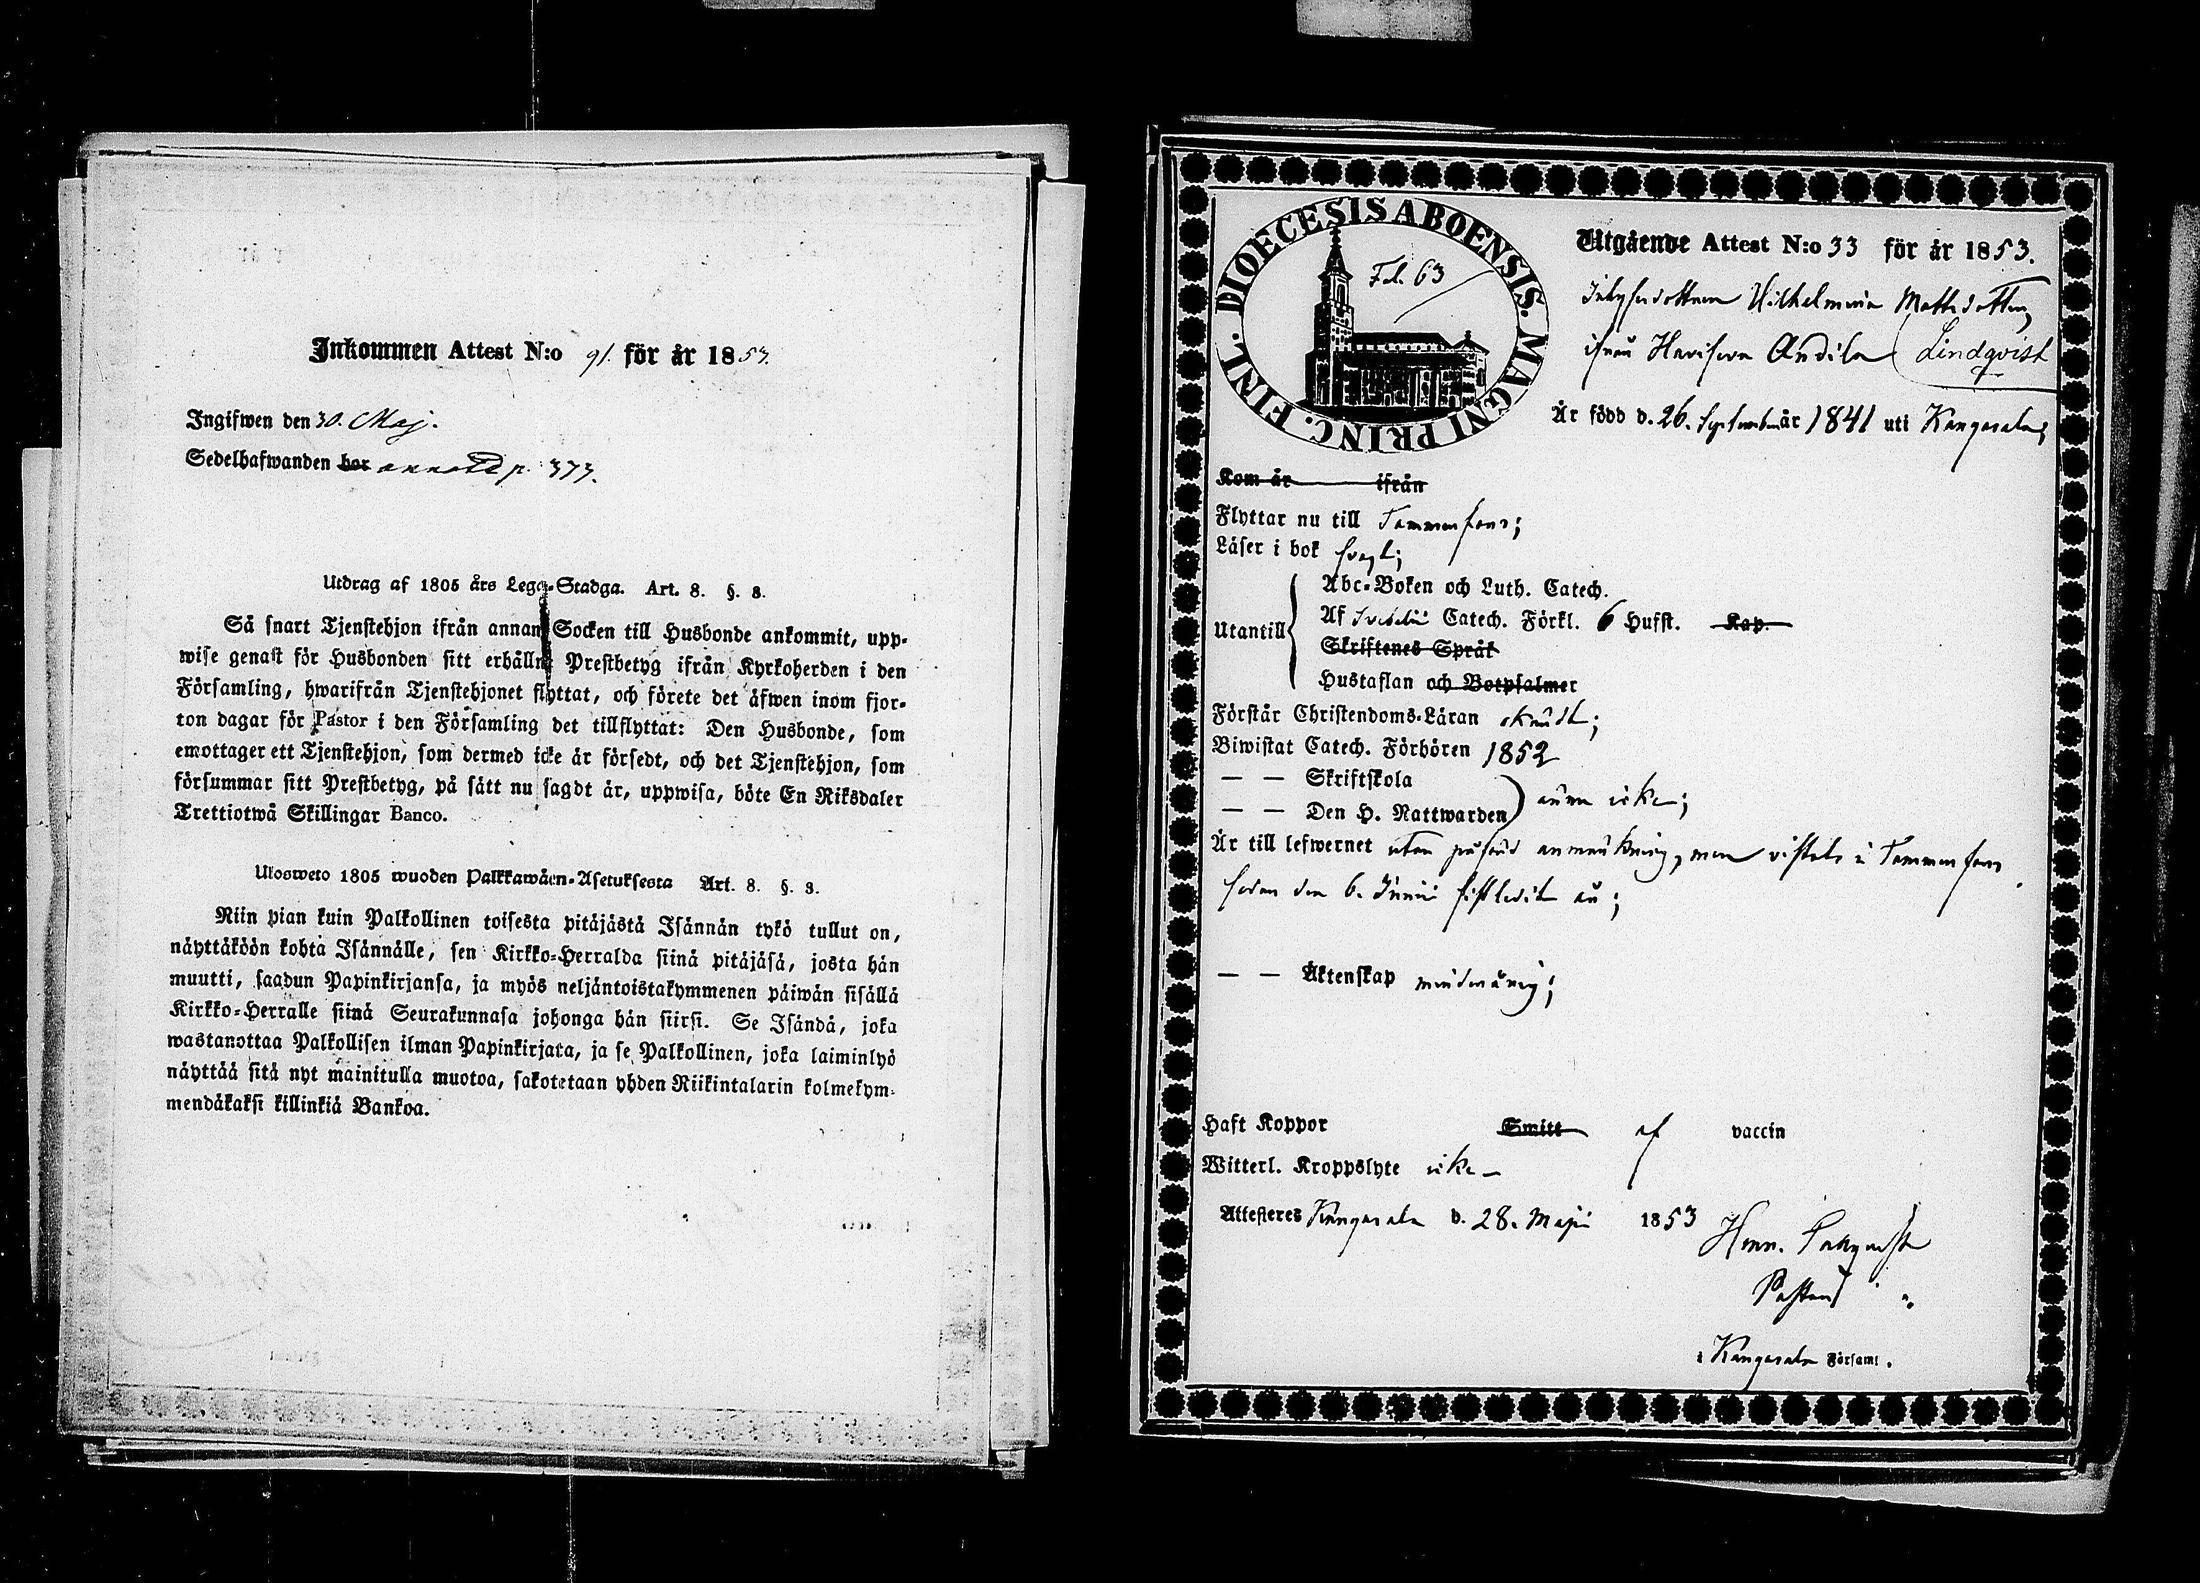 Inkommen Attest N:o 91. för år 1853.
Ingifwen den 30. Maj.
Sedelhafwanden bor annoted p. 373.
Utdrag af 1805 års Lego-Stadga. Art. 8. §. 8.
Så snart Tjenstehjon ifrån annan Socken till Husbonde ankommit, upp-
wise genast för Husbonden sitt erhållna Prestbetyg ifrån Kyrkoherden i den
Församling, hwarifrån Tjenstehjonet flyttat, och förete det äfwen inom fjor-
ton dagar för Pastor i den Församling det tillflyttat: Den Husbonde, som
emottager ett Tjenstehjon, som dermed icke är försedt, och det Tjenstehjon, som
försummar sitt Prestbetyg, på sätt nu sagdt är, uppwisa, böte En Riksdaler
Trettiotwå Skillingar Banco.
Ulosweto 1805 wuoden Palkkawäen-Asetuksesta Art. 8. §. 8.
Niin pian kuin Palkollinen toisesta pitäjästä Isännän tykö tullut on,
näyttäköön kohta Isännälle, sen Kirkko-Herralda siinä pitäjäsä, josta hän
muutti, saadun Papinkirjansa, ja myös neljäntoistakymmenen päiwän sisällä
Kirkko-Herralle siinä Seurakunnasa johonga hän siirsi. Se Isändä, joka
wastanottaa Palkollisen ilman Papinkirjata, ja se Palkollinen, joka laiminlyö
näyttää sitä nyt mainitulla muotoa, sakotetaan yhden Riikintalarin kolmekym-
mendäkaksi killinkiä Bankoa.
DIOECESIS ABOENSIS. MAGNI PRINC. FINL.
Fol. 63
Utgående Attest N:o 33 för år 1853.
Inhysesdottren Wilhelmina Mattsdotter,
ifrån Andila Lindqvist
Är född d. 26. September år 1841 uti Kangasala;
Kom år ifrån
Flyttar nu till Tammerfors;
Läser i bok svagt;
Utantill
Abc-Boken och Luth. Catech.
Af Svebelii Catech. Förkl. 6 Hufst. Kap.
Skriftenes Språk
Hustaflan och Botpsalmer
Förstår Christendoms-Läran okundt;
Biwistat Catech. Förhören 1852
— — Skriftskola
— — Den H. Nattwarden ännu icke;
Är till lefwernet utan påförd anmärkning, men vistats i Tammerfors
sedan den 6. Junii sistledit år;
— — Äktenskap minderårig;
Haft Koppor Smitt af vaccin
Witterl. Kroppslyte icke —
Attesteres Kangasala d. 28. Maji 1853
Henr.
Pastor
i Kangasala Församl.